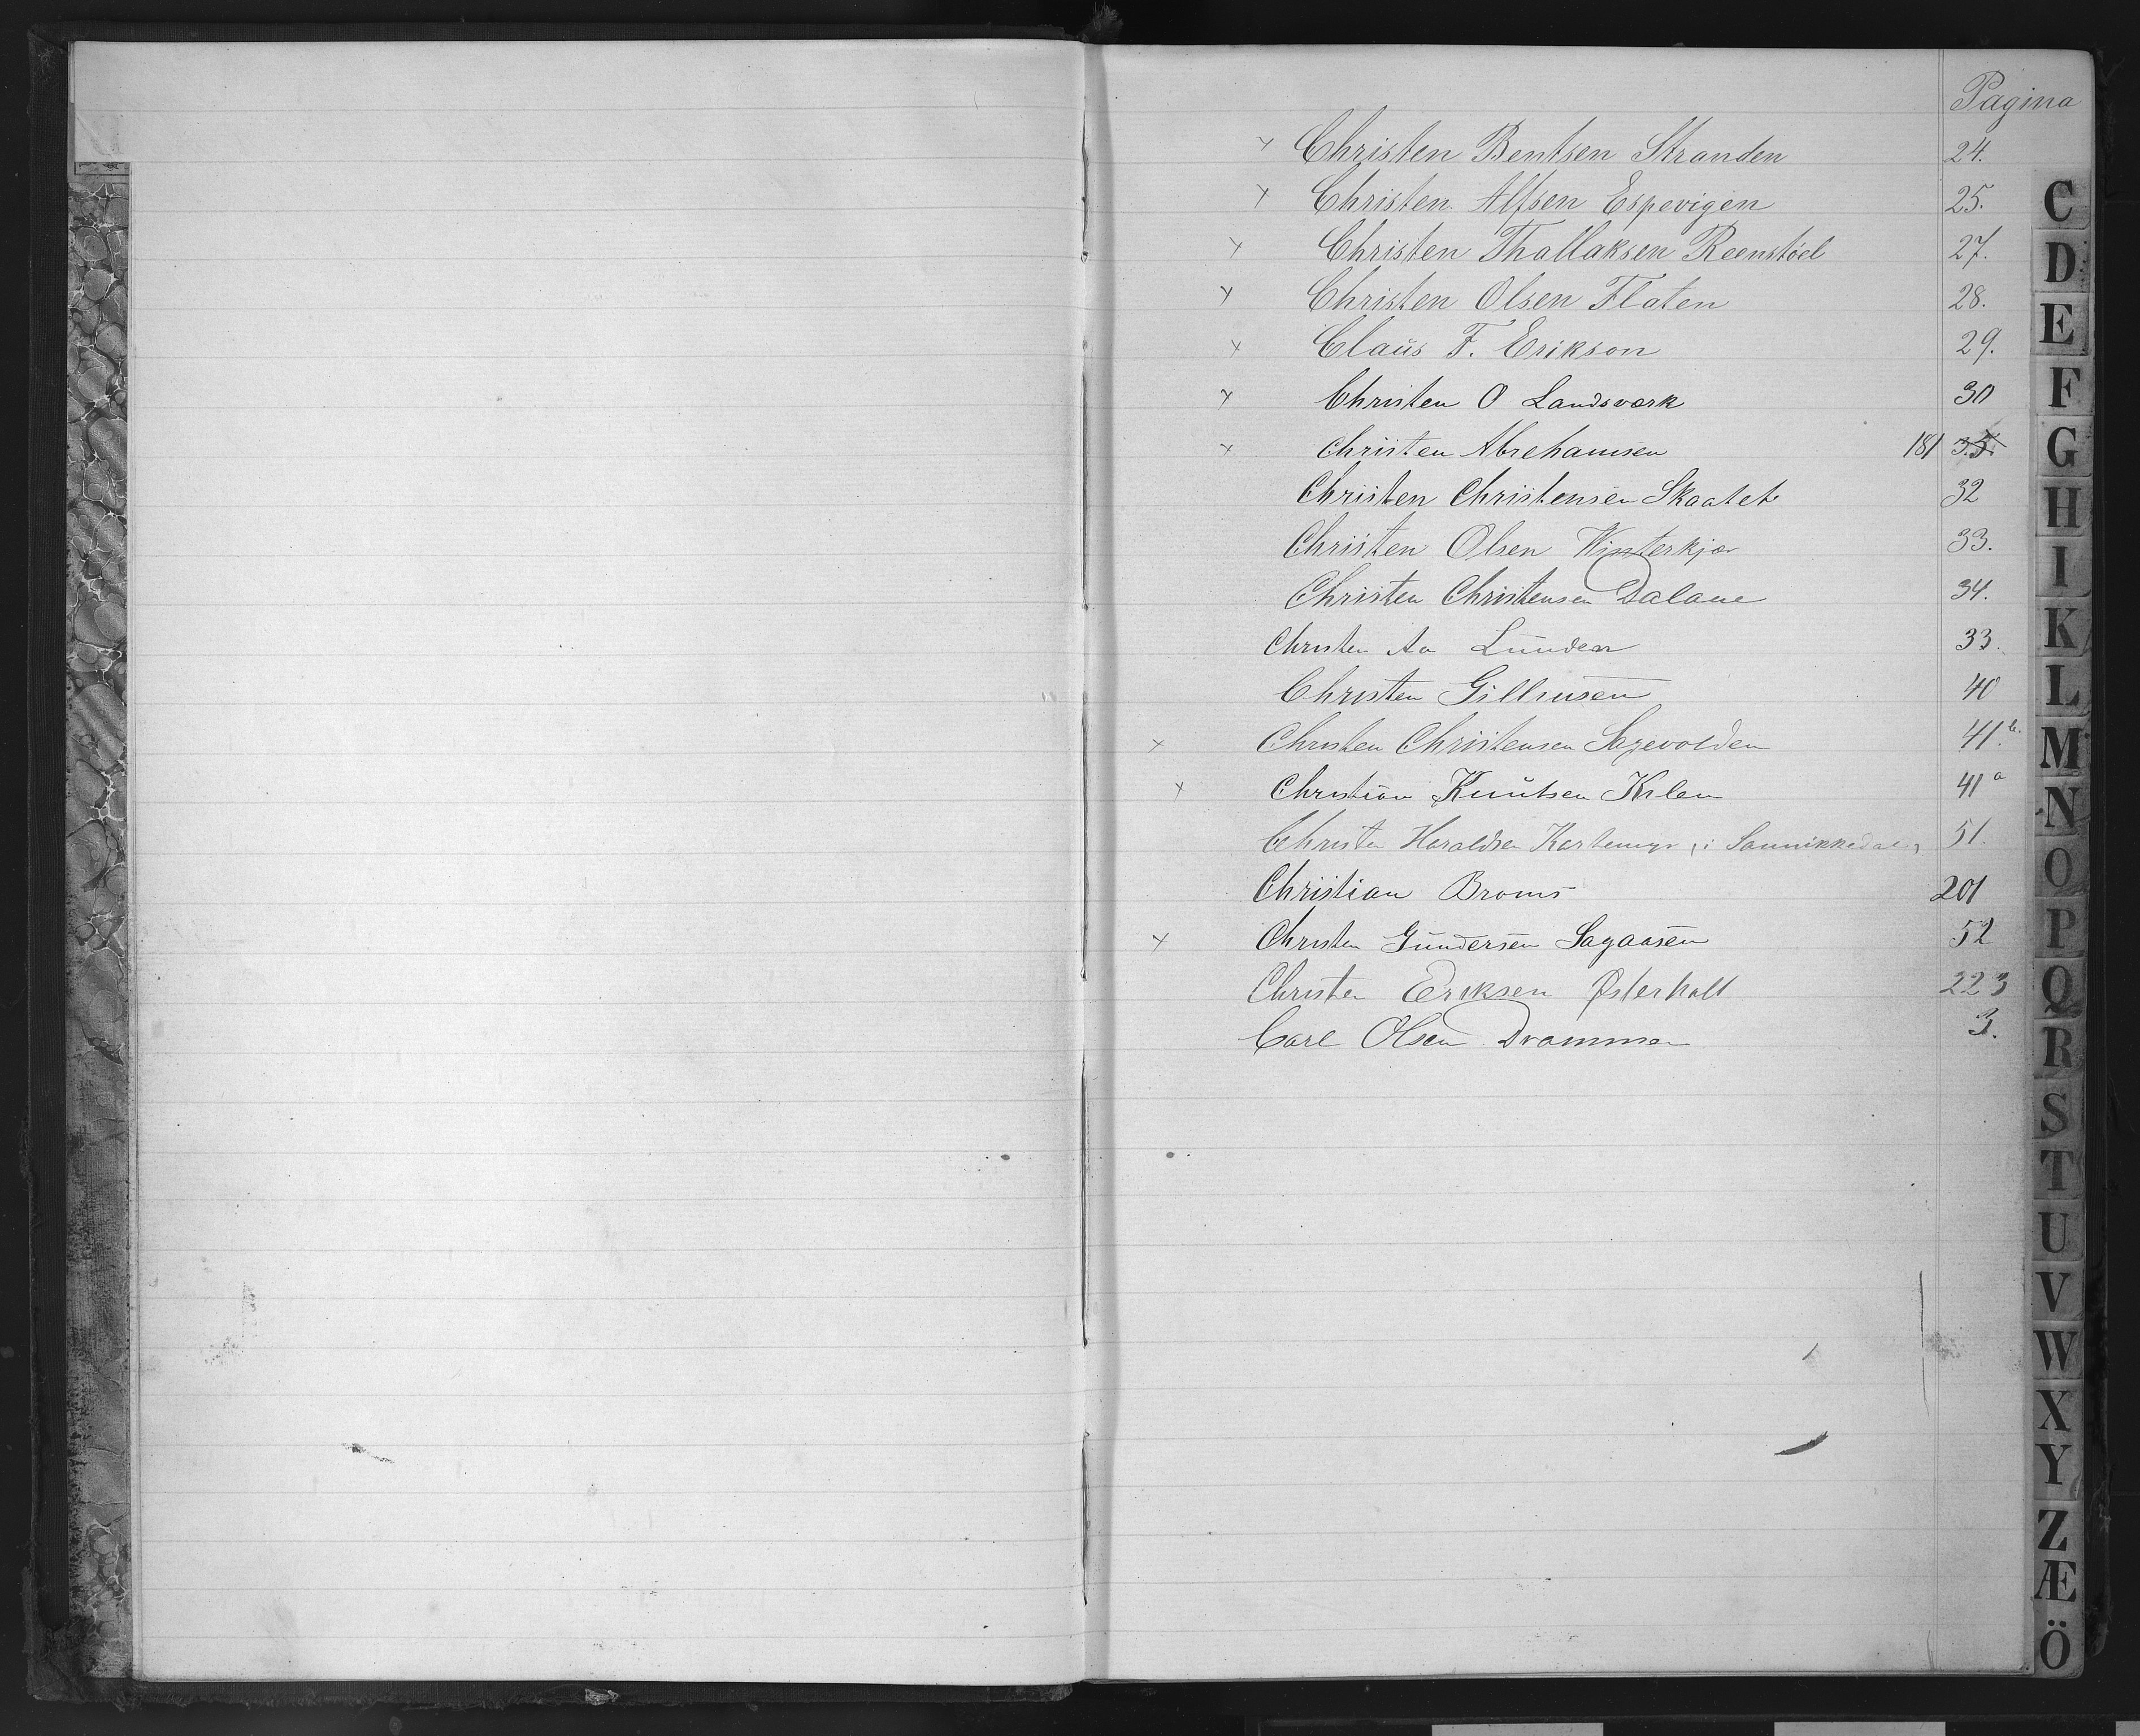 Pagina
x Christen Bentsen Stranden 24.
x Christen Alfsen Espevigen 25.
x Christen Thallaksen Reenstöel 27.
x Christen Olsen Flaten 28.
x Claus F. Erikson 29.
x Christen O Landsværk 30
x Christen Abrehamsen 181 35.
Christen Christensen Skaatet 32
Christen Olsen Winterkjær 33.
Christen Christensen Dalane 34.
Christen Aa Lunden 33.
Christen Gillrusen 40
x Christen Christensen Sagevolden 41.b.
x Christian Knutsen Kilen 41a
Christen Haraldsen i Sannikkedal 51.
Christian Broms 201
x Christen Gundersen Sagaasen 52
Christen Eriksen Østerholt 223
Carl Olsen Drammen 3.
C
D
E
F
G
H
I
K
L
M
N
O
P
Q
R
S
T
U
V
W
X
Y
Z
Æ
Ö